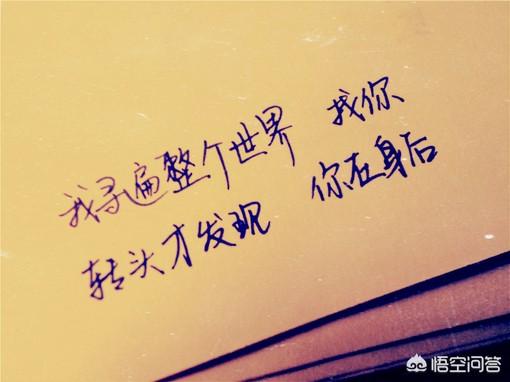 我寻遍整个世界 找你
转头才发现 你在身后
悟空问答